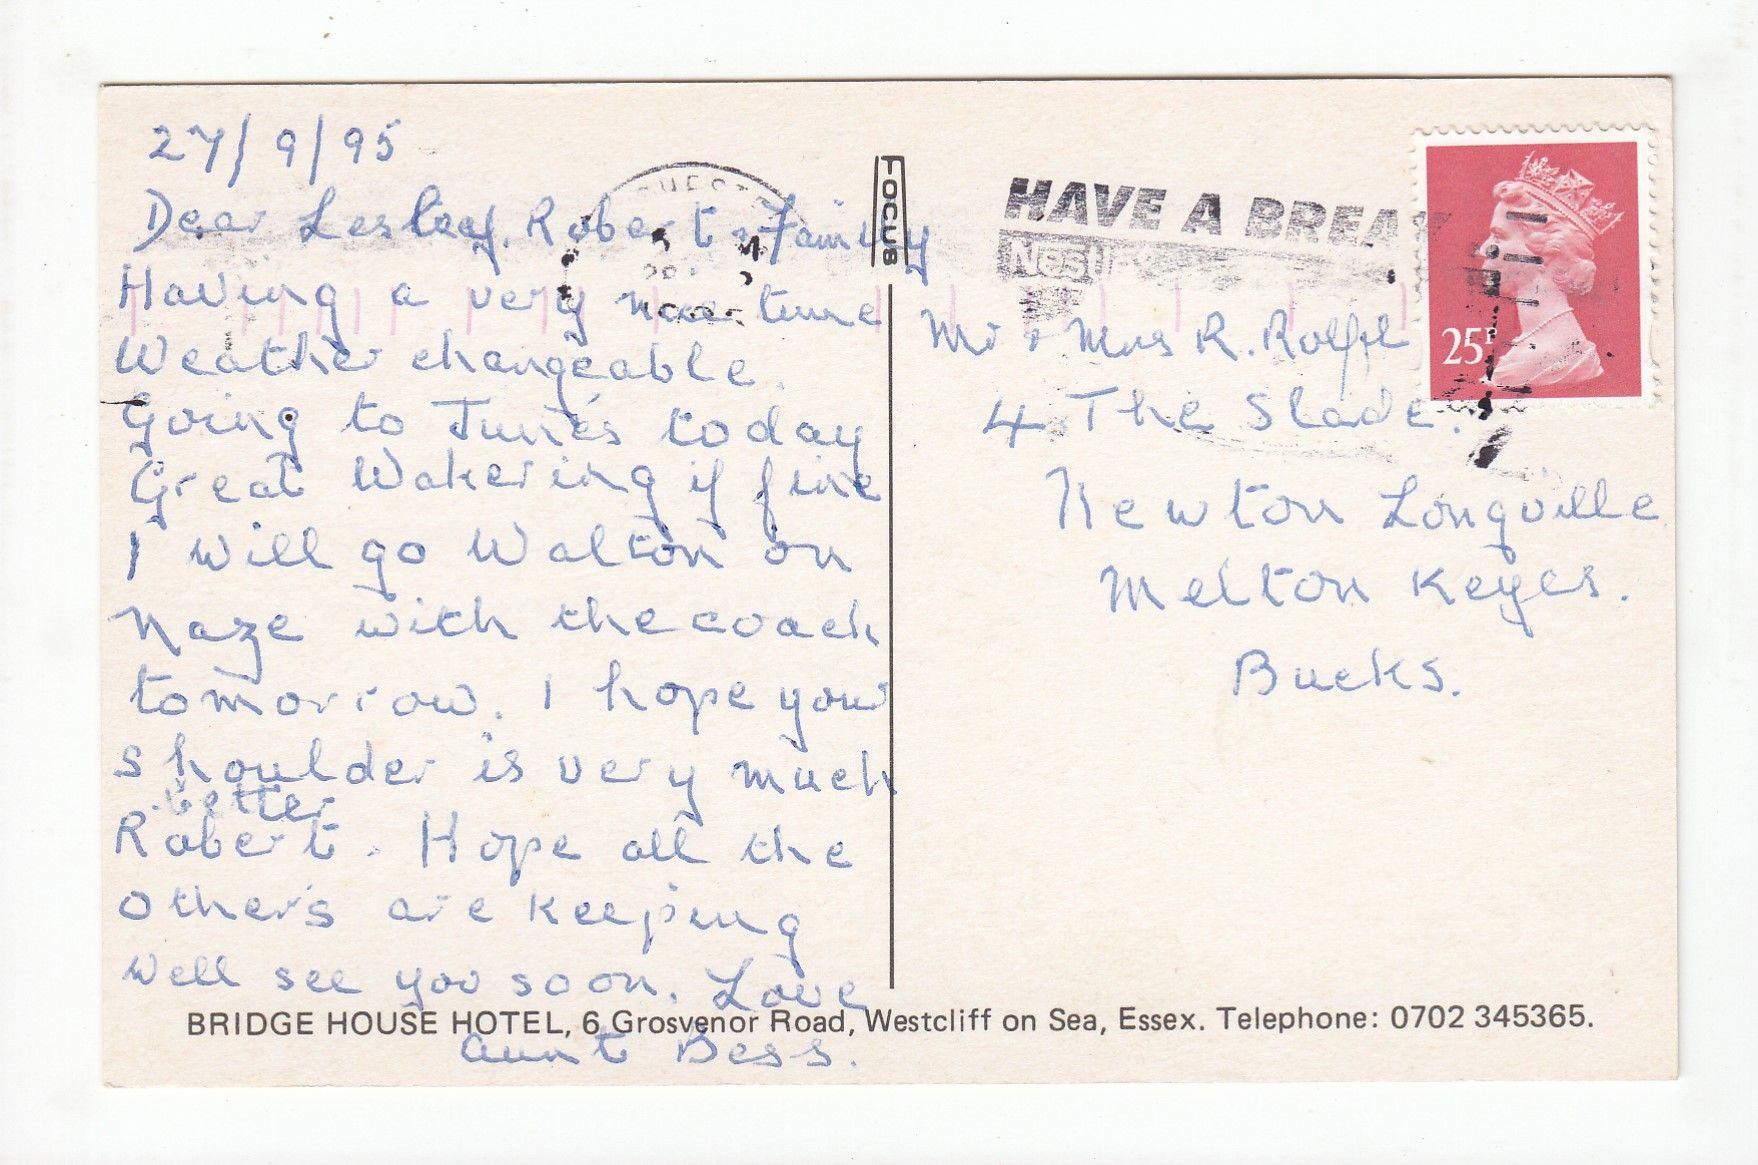 27/9/95
Dear Lesley. Robert & Family
Having a very nice time
Weather changeable.
Going to June's today
Great Wakering if fine
I will go Walton on
Naze with the coach
tomorrow. I hope your
shoulder is very much
better
Robert. Hope all the
others are keeping
well see you soon. Love
Aunt Bess.
FOCUS
HAVE A BREAK
Nestlé
25P
Mr & Mrs R. Rolfe
4 The Slade.
Newton Longville
Melton Keyes.
Bucks.
BRIDGE HOUSE HOTEL, 6 Grosvenor Road, Westcliff on Sea, Essex. Telephone: 0702 345365.